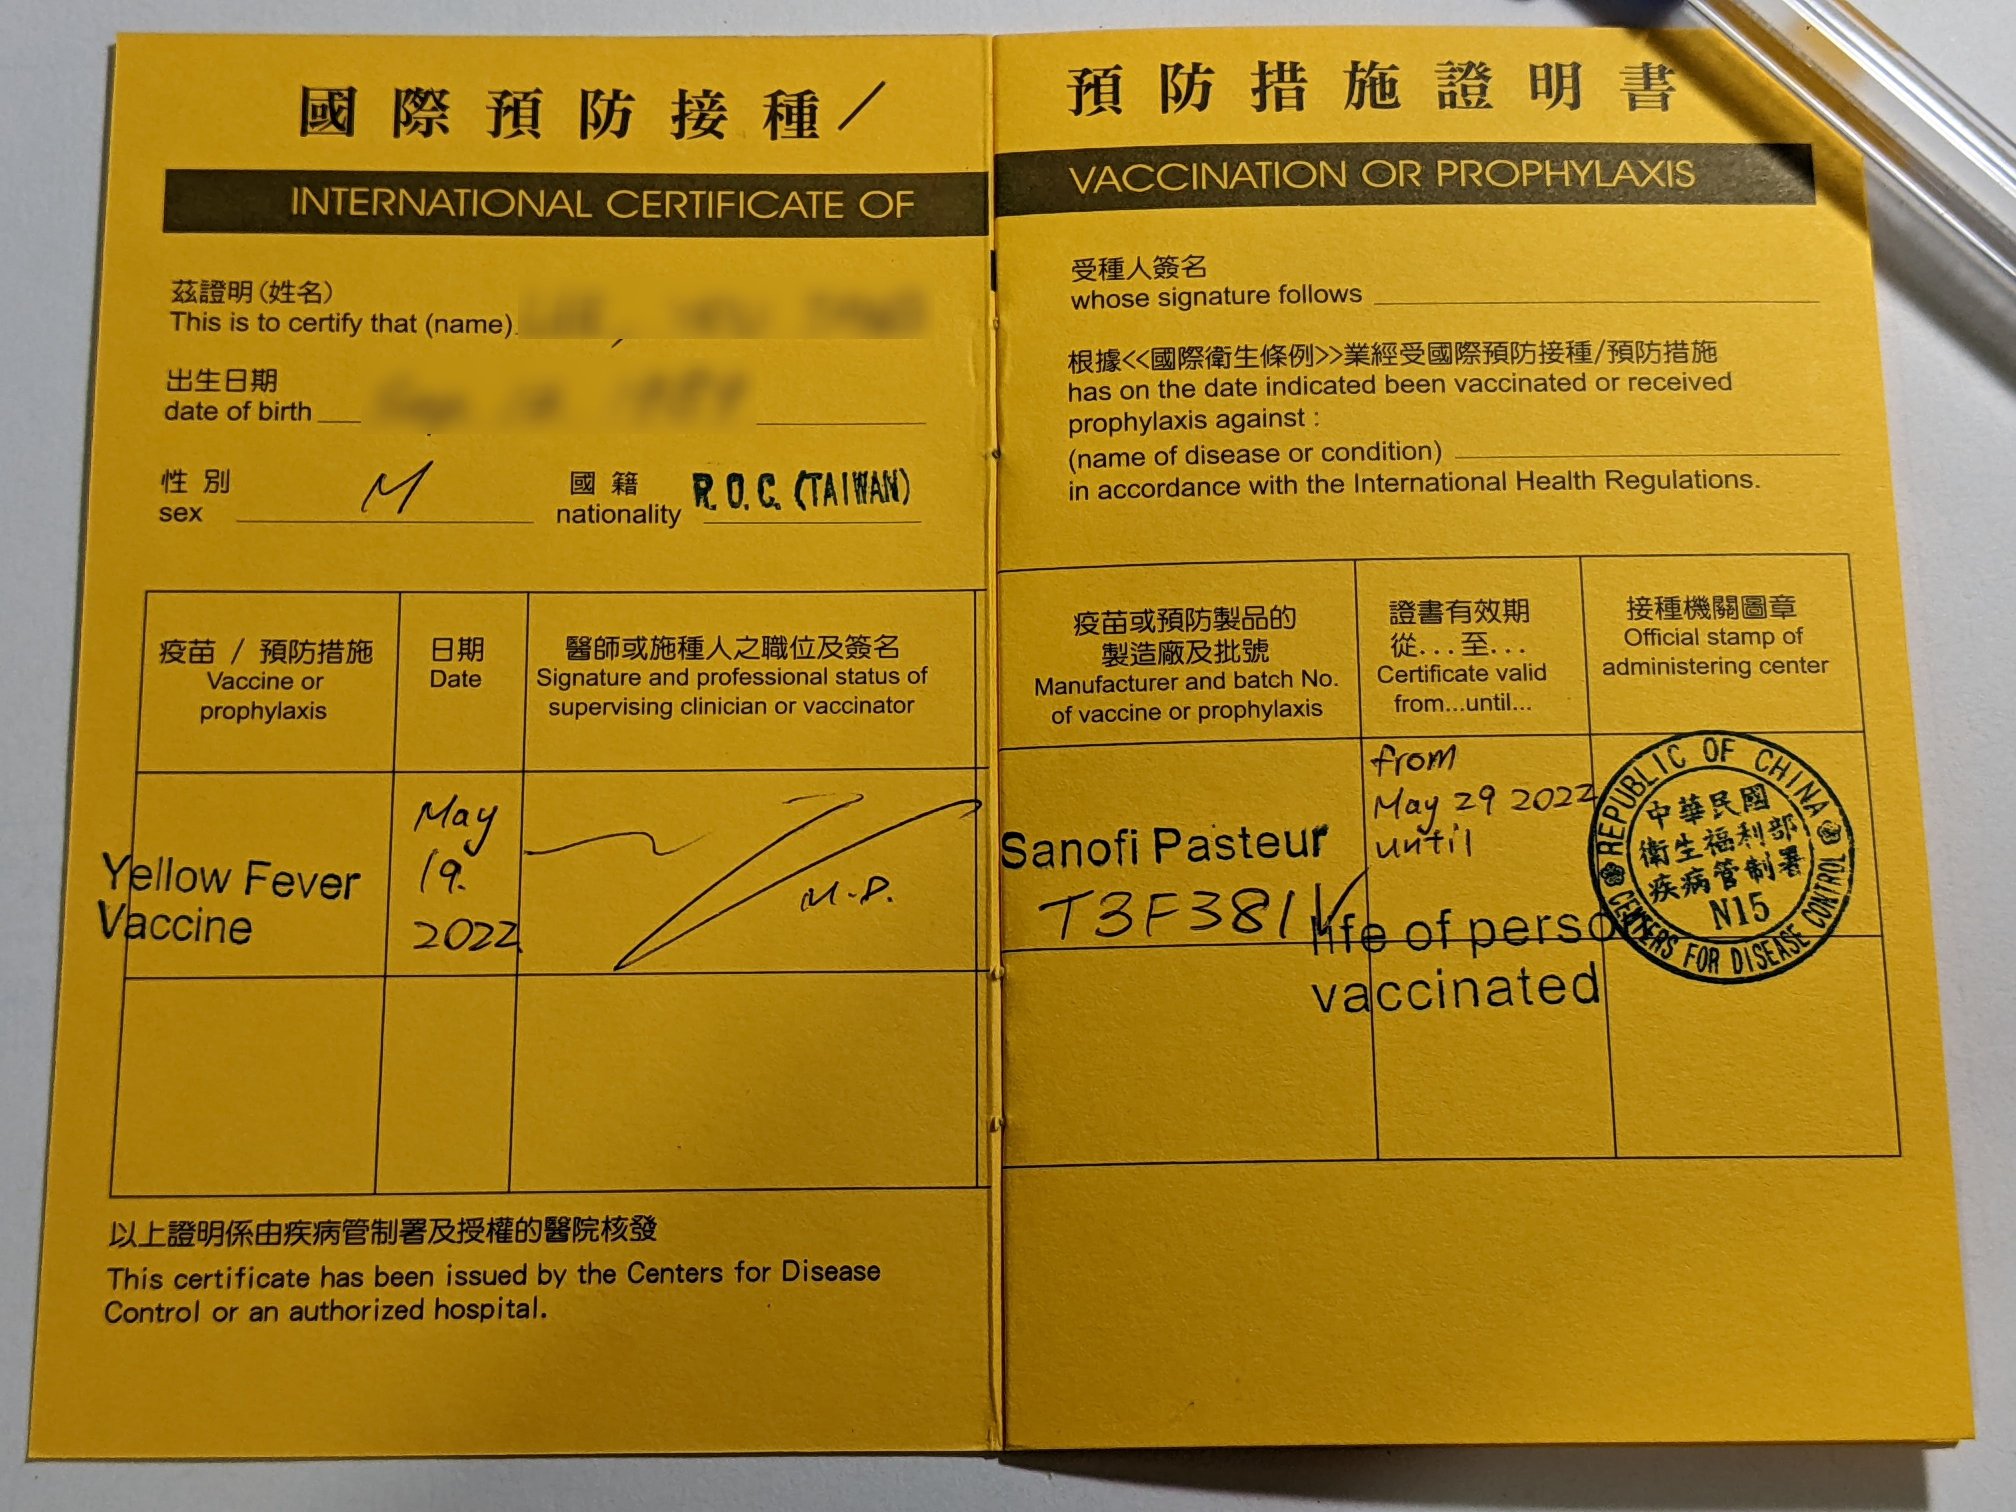 國際預防接種/
INTERNATIONAL CERTIFICATE OF
茲證明(姓名)
This is to certify that (name)
出生日期
date of birth
性別 M 國籍 R.O.C. (TAIWAN)
sex nationality
疫苗 / 預防措施
Vaccine or
prophylaxis
日期
Date
醫師或施種人之職位及簽名
Signature and professional status of
supervising clinician or vaccinator
Yellow Fever
Vaccine
May
19.
2022
M.D.
以上證明係由疾病管制署及授權的醫院核發
This certificate has been issued by the Centers for Disease
Control or an authorized hospital.
預防措施證明書
VACCINATION OR PROPHYLAXIS
受種人簽名
whose signature follows
根據<<國際衛生條例>>業經受國際預防接種/預防措施
has on the date indicated been vaccinated or received
prophylaxis against :
(name of disease or condition)
in accordance with the International Health Regulations.
疫苗或預防製品的
製造廠及批號
Manufacturer and batch No.
of vaccine or prophylaxis
證書有效期
從...至...
Certificate valid
from...until...
接種機關圖章
Official stamp of
administering center
Sanofi Pasteur
T3F381V
from
May 29 2022
until
life of person
vaccinated
REPUBLIC OF CHINA
中華民國
衛生福利部
疾病管制署
N15
CENTERS FOR DISEASE CONTROL